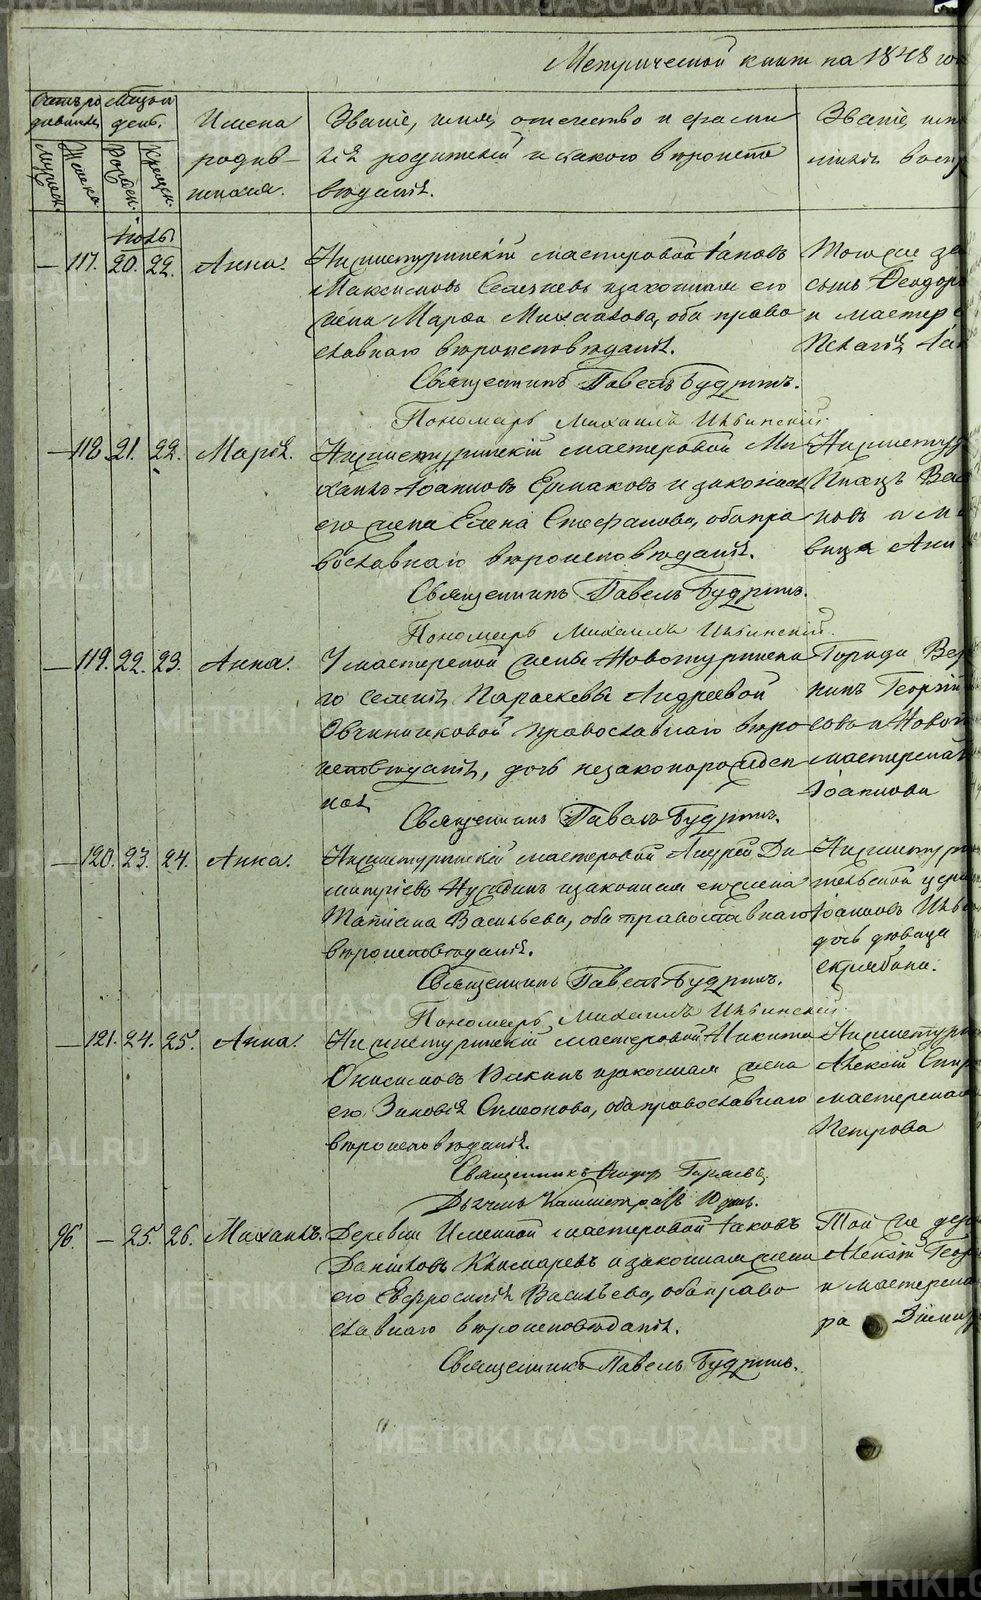 Метрической книги на 1848 го
Счетъ ро
дившихся
Мужеск.
Женска.
Месяцъ и
день.
Рожден.
Крещен.
Имена
родив-
шихся.
Званіе, имя, отчество и фами
лія родителей и какого вѣроиспо
вѣданія.
Званіе, имя
Іюль
— 117. 20. 22. Анна.
Нижнетуринскій мастеровой Іаковъ
Максимовъ и законная его
жена Марѳа Михайлова, оба право
славнаго вѣроисповѣданія.
Священникъ Павелъ Будринъ.
Пономарь Михаилъ Ильинскій.
Тогоже за
сынъ Ѳеодоръ
и мастер
Пелагія Іак
— 118. 21. 22. Марія.
Нижнетуринскій мастеровой Ми
хаилъ Іоанновъ Ермаковъ и законная
его жена Елена Стефанова, оба пра
вославнаго вѣроисповѣданія.
Священникъ Павелъ Будринъ.
Пономарь Михаилъ Ильинскій.
Нижнетур
новъ и м
вица Анн
— 119. 22. 23. Анна.
У мастерской жены Новотуринска
го селенія Параскевы Андреевой
Овчинниковой православнаго вѣро
исповѣданія, дочь незаконорожден
ная
Священникъ Павелъ Будринъ.
Города Вер
нинъ Георгій
совъ и Новот
мастерская
Іоаннова
— 120. 23. 24. Анна.
Нижнетуринскій мастеровой Андрей Ди
митріевъ и законная его жена
Татіана Васильева, оба православнаго
вѣроисповѣданія.
Священникъ Павелъ Будринъ.
Пономарь Михаилъ Ильинскій.
Нижнетури
тельской церк
Іоанновъ Иль
дочь девица
скрябина.
— 121. 24. 25. Анна.
Нижнетуринскій мастеровой Никита
Онисимовъ и законная жена
его Зиновія Симеонова, оба православнаго
вѣроисповѣданія.
Священникъ
Нижнетури
Алексій Спир
мастерская
Петрова
96. — 25. 26. Михаилъ.
Деревни Именной мастеровой Іаковъ
Даниловъ и законная жена
его Евфросинія Васильева, оба право
славнаго вѣроисповѣданія.
Священникъ Павелъ Будринъ.
Той же дере
Алексій Геор
и мастерска
ра
METRIKI.GASO-URAL.RU